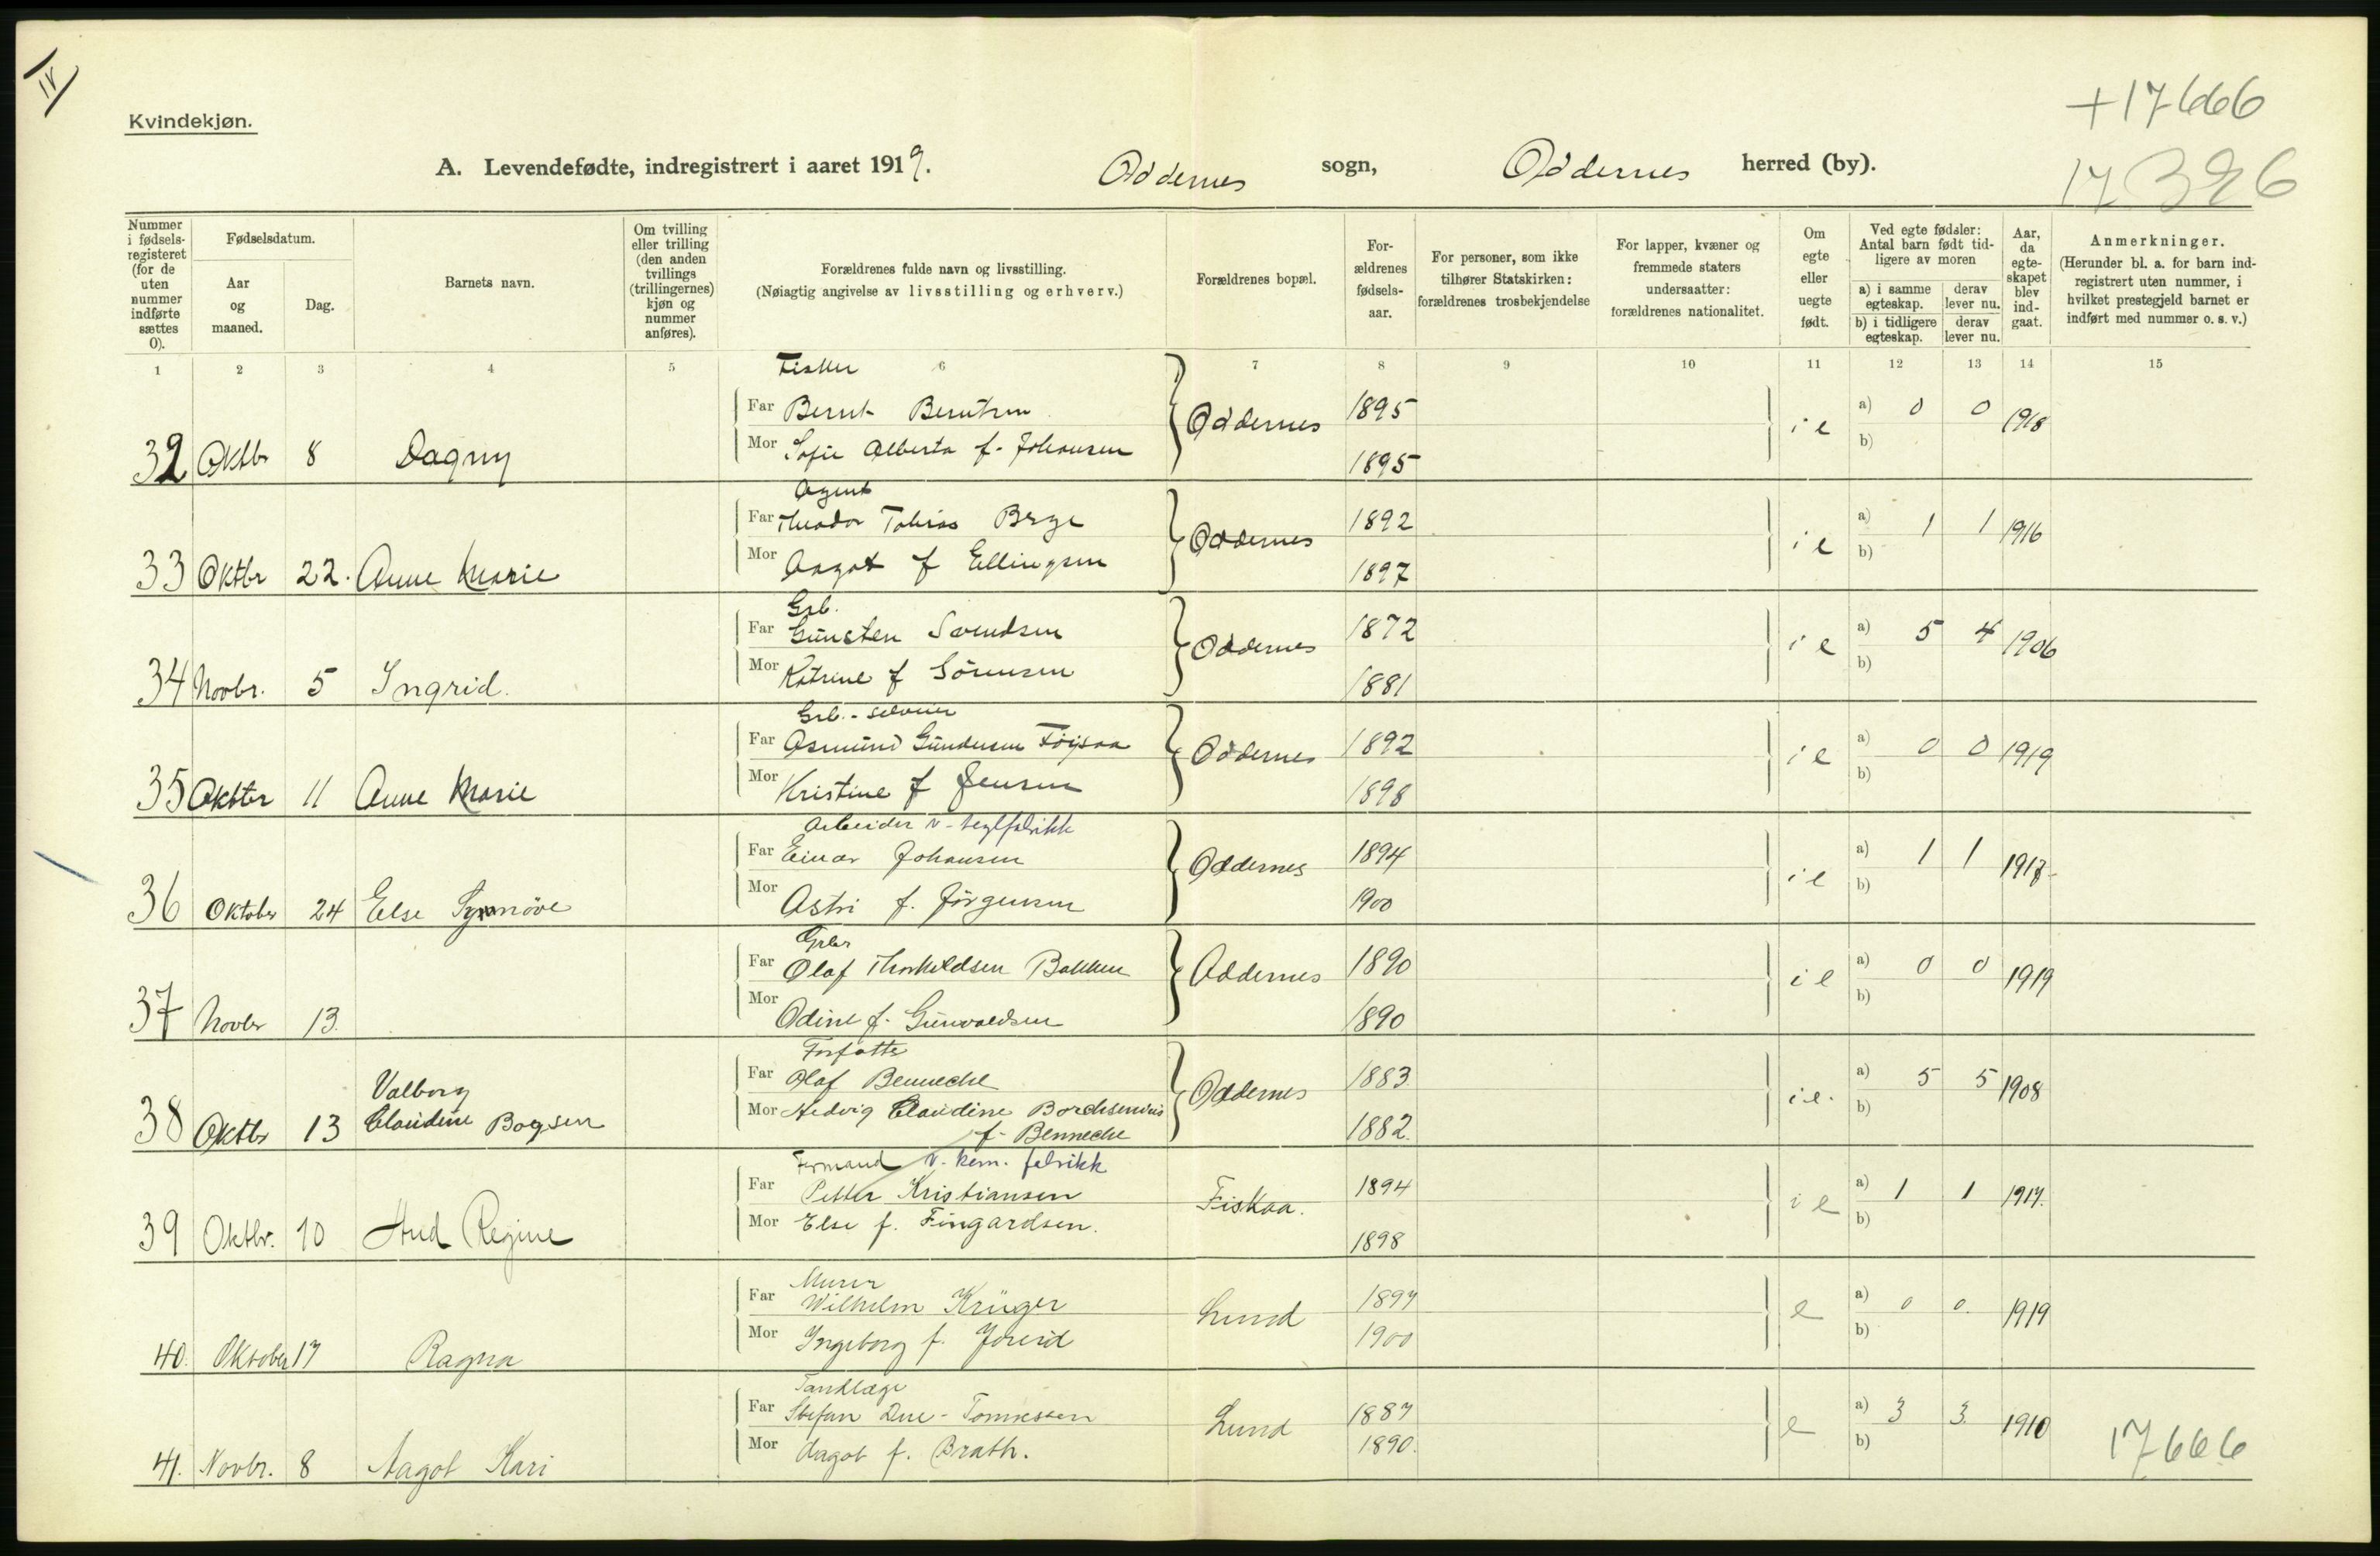 IV
Kvindekjøn.
+17666
17326
A. Levendefødte, indregistrert i aaret 1919. Oddernes sogn, Oddernes herred (by).
Nummer i fødselsregisteret (for de uten nummer indførte sættes 0).
Fødselsdatum.
Aar og maaned.
Dag.
Barnets navn.
Om tvilling eller trilling (den anden tvillings (trillingernes) kjøn og nummer anføres).
Forældrenes fulde navn og livsstilling.
(Nøiagtig angivelse av livsstilling og erhverv.)
Forældrenes bopæl.
Forældrenes fødselsaar.
For personer, som ikke tilhører Statskirken: forældrenes trosbekjendelse
For lapper, kvæner og fremmede staters undersaatter: forældrenes nationalitet.
Om egte eller uegte født.
Ved egte fødsler: Antal barn født tidligere av moren
a) i samme egteskap. derav lever nu.
b) i tidligere egteskap. derav lever nu.
Aar, da egteskapet blev indgaat.
Anmerkninger.
(Herunder bl. a. for barn indregistrert uten nummer, i hvilket prestegjeld barnet er indført med nummer o. s. v.)
1 2 3 4 5 6 7 8 9 10 11 12 13 14 15
Fisker
Far Bernt Berntsen Oddernes 1895 ie a) 0 0 1918
32 Oktbr 8 Dagny Mor Sofie Alberta f. Johansen 1895 b)
Agent
Far Theodor Tobias Berge Oddernes 1892 ie a) 1 1 1916
33 Oktbr 22. Anne Marie Mor Aagot f Ellingsen 1897 b)
Grb.
Far Gunsten Svendsen Oddernes 1872 ie a) 5 4 1906
34 Novbr. 5 Ingrid. Mor Katrine f Sörensen 1881 b)
Grb.-
Far Asmund Gundersen Oddernes 1892 ie a) 0 0 1919
35 Oktbr 11 Anne Marie Mor Kristine f Jensen 1898 b)
Arbeider v- teglfabrikk
Far Einar Johansen Oddernes 1894 ie a) 1 1 1918
36 Oktober 24 Else Synnöve Mor Astri f. Jörgensen 1900 b)
Grbr
Far Olaf Thorkildsen Bakken Oddernes 1890 ie a) 0 0 1919
37 Novbr 13. Mor Odine f. Gunvaldsen 1890 b)
Forfatter
Far Olaf Benneche Oddernes 1883. ie. a) 5 5 1908
38 Oktbr 13 Valborg Claudine Bogsen Mor Hedvig Claudine Borchsenius f- Benneche 1882. b)
Formand v. kem. fabrikk
Far Petter Kristiansen Fiskaa. 1894 ie a) 1 1 1917.
39 Oktbr. 10 Aud Regine Mor Else f. Fingardsen. 1898 b)
Murer
Far Wilhelm Krüger Lund 1897 e a) 0 0. 1919
40. Oktober 17 Ragna Mor Ingeborg f. 1900 b)
Tandlæge
Far Stefan Due-Tønnessen Lund 1887 e a) 3 3. 1910
41. Novbr. 8 Aagot Kari Mor Aagot f. Brath. 1890. b)
17666